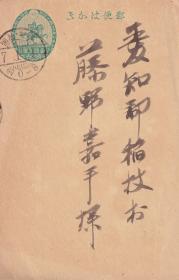 郵便はかき
愛知郡稲枝村
藤野嘉平様